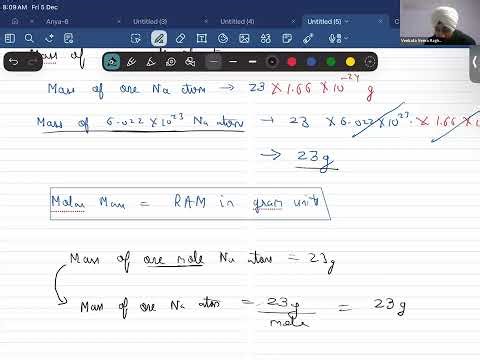 8:09 AM Fri 5 Dec
Anya-6
Untitled (3)
Untitled (4)
Untitled (5)
Mass of
Mass of one Na atom → 23 × 1.66 × 10⁻²⁴ g
Mass of 6.022 × 10²³ Na atom → 23 × 6.022 × 10²³ × 1.66 × 1
→ 23g
Molar Mass = RAM in gram unit
Mass of one mole Na atom = 23g
Mass of one Na atom = 23g/mole = 23g